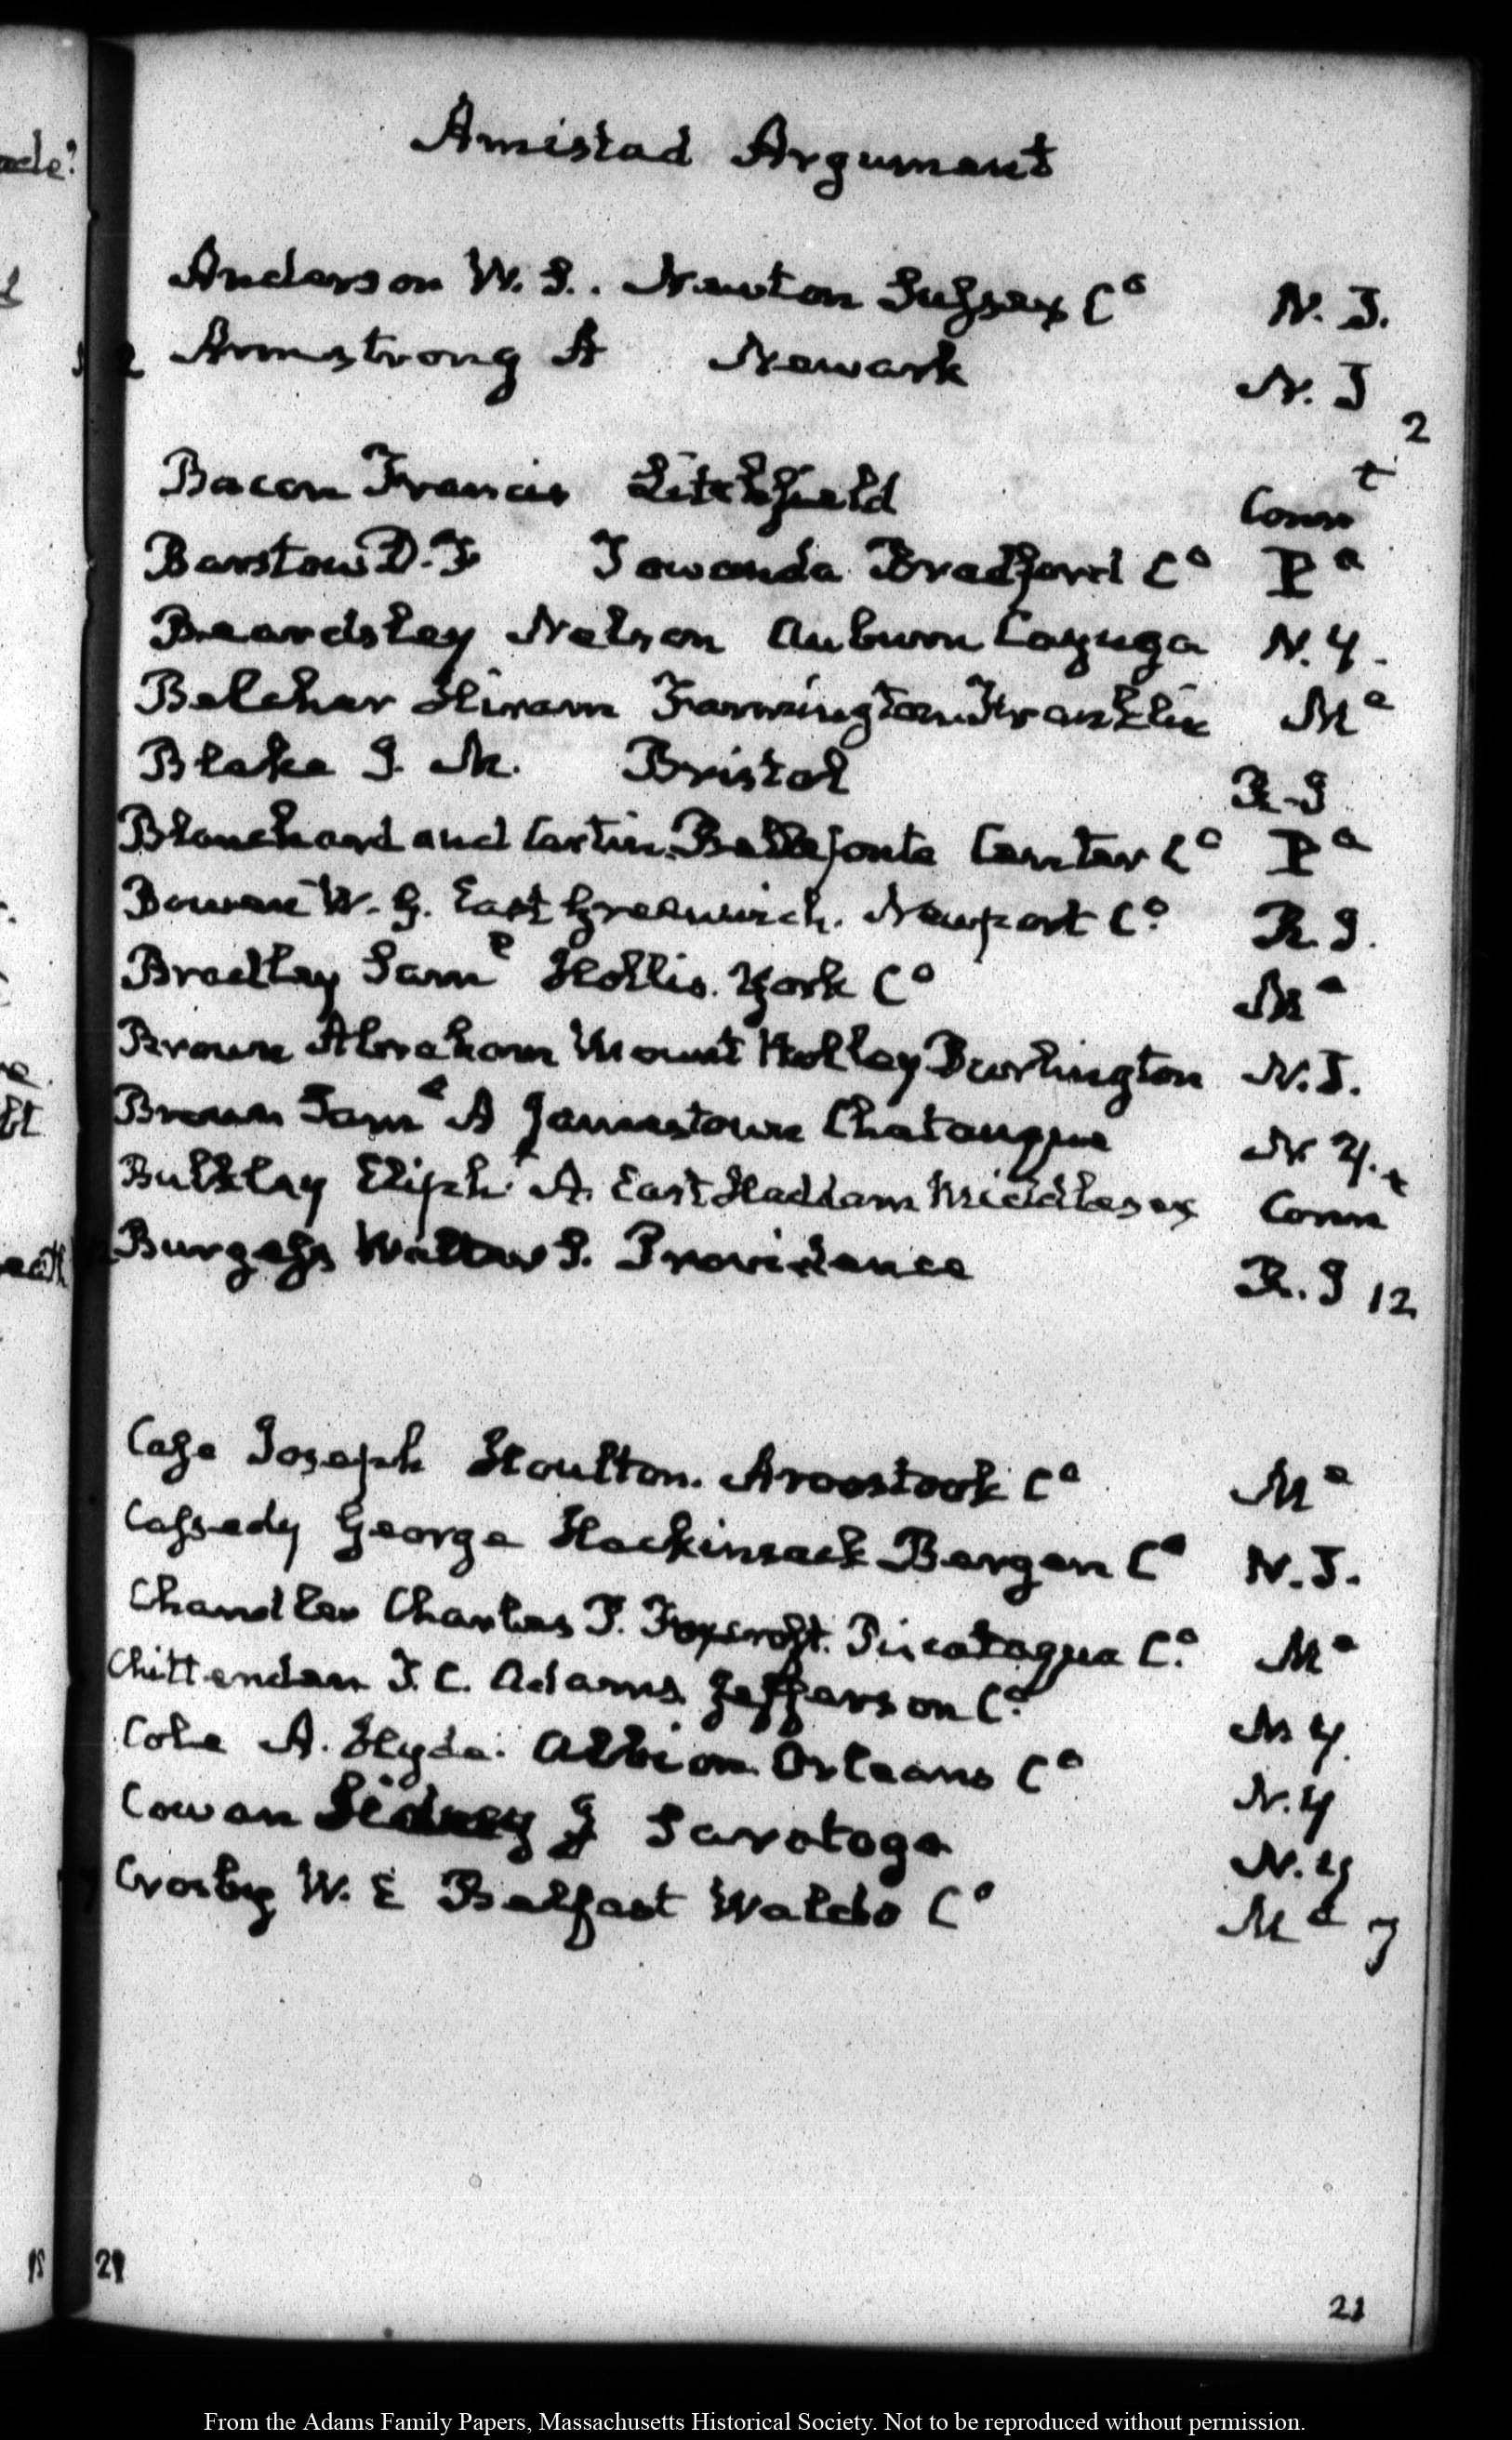 Amistad Argument
Anderson W. S.. Newton Sussex Co N. J.
Armstrong A Newark N. J
2
Bacon Francis Litchfield Connt
Barstow D. F Towanda Bradford Co Pa
Beardsley Nelson Auburn Cayuga N. Y.
Belcher Hiram Farmington Franklin Me
Blake I. M. Bristol R-I
Blanchard and Curtin. Bellefonte Center Co Pa
Bowen W. G. East Greenwich. Newport Co. R. I.
Bradley Saml Hollis. York Co Me
Brown Abraham Mount Holley Burlington N. J.
Brown Saml A Jamestown Chatauque N Y.
Bulkley Eliph. A. East Haddam Middlesex Connt
Burgess Walter S. Providence R. I 12
Case Joseph Houlton. Aroostook Co Me
Cassedy George Hackinsack Bergen Co N. J.
Chandler Charles P. Foxcroft. Piscataqua Co. Me
Chittenden T. C. Adams. Jefferson Co. N Y.
Cole A. Hyde. Albion. Orleans Co N. Y
Cowan Sidney J Saratoga N. Y
Crosby W. E Belfast Waldo Co Me 7
21
From the Adams Family Papers, Massachusetts Historical Society. Not to be reproduced without permission.